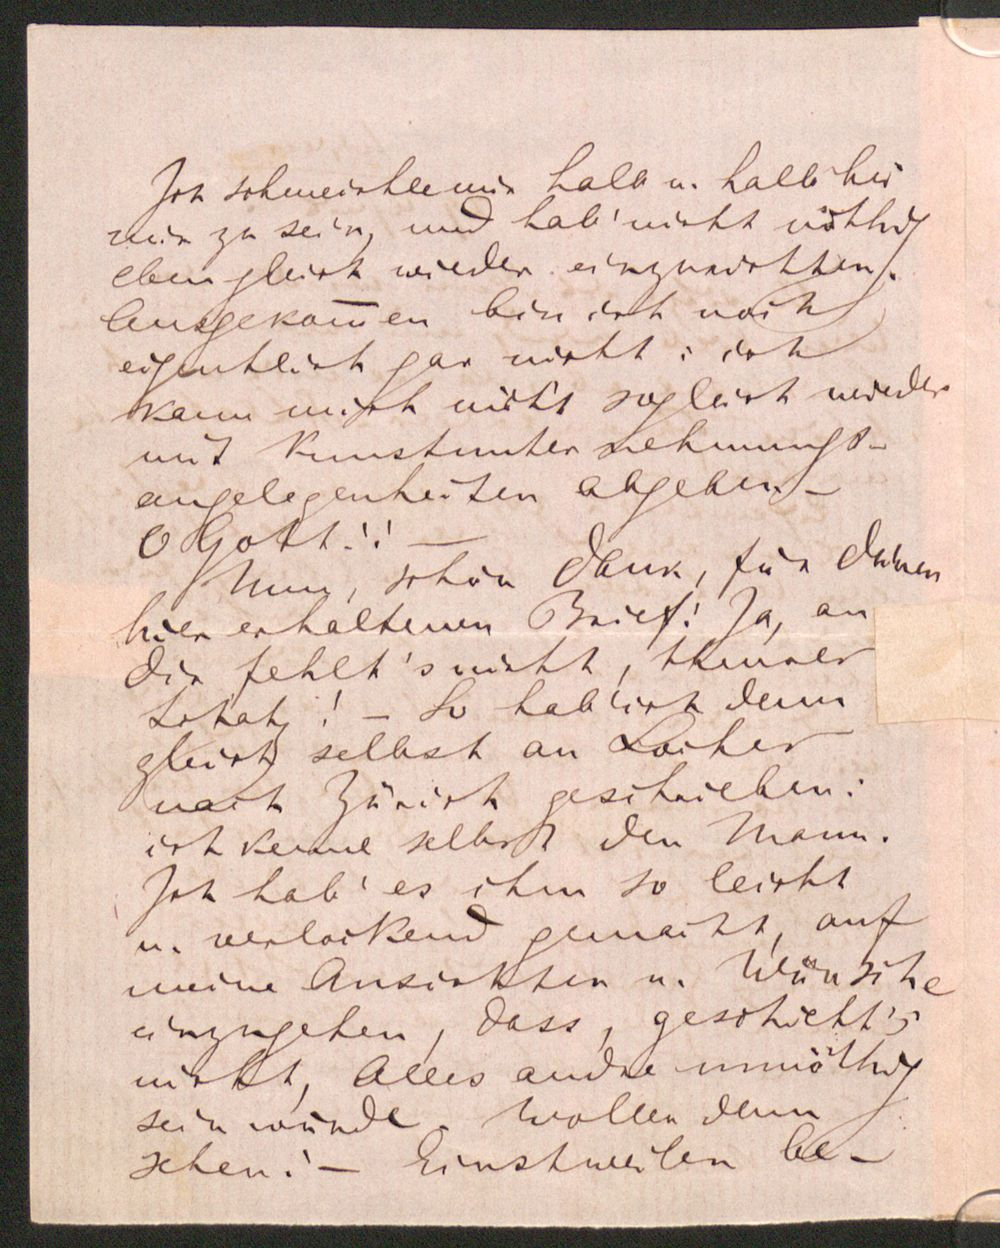 Ich schmeichle mir halb u. halb bei
mir zu sein, und hab' nicht nöthig
eben gleich wieder einzurichten.
Ausgekom̄en bin ich noch
eigentlich gar nicht: ich
kann mich nicht sogleich wieder
mit Kunstunternehmungs-
angelegenheiten abgeben. –
O Gott!! –
Nun, schön Dank, für deinen
hier erhaltenen Brief! Ja, an
dir fehlt's nicht, theurer
Schatz! – So hab' ich denn
gleich selbst an
nach Zürich geschrieben:
ich kenne selbst den Mann.
Ich hab' es ihm so leicht
u. verlockend gemacht, auf
meine Ansichten u. Wünsche
einzugehen, dass, geschieht's
nicht, Alles andre unnöthig
sein würde. Wollen denn
sehen! – Einstweilen be-